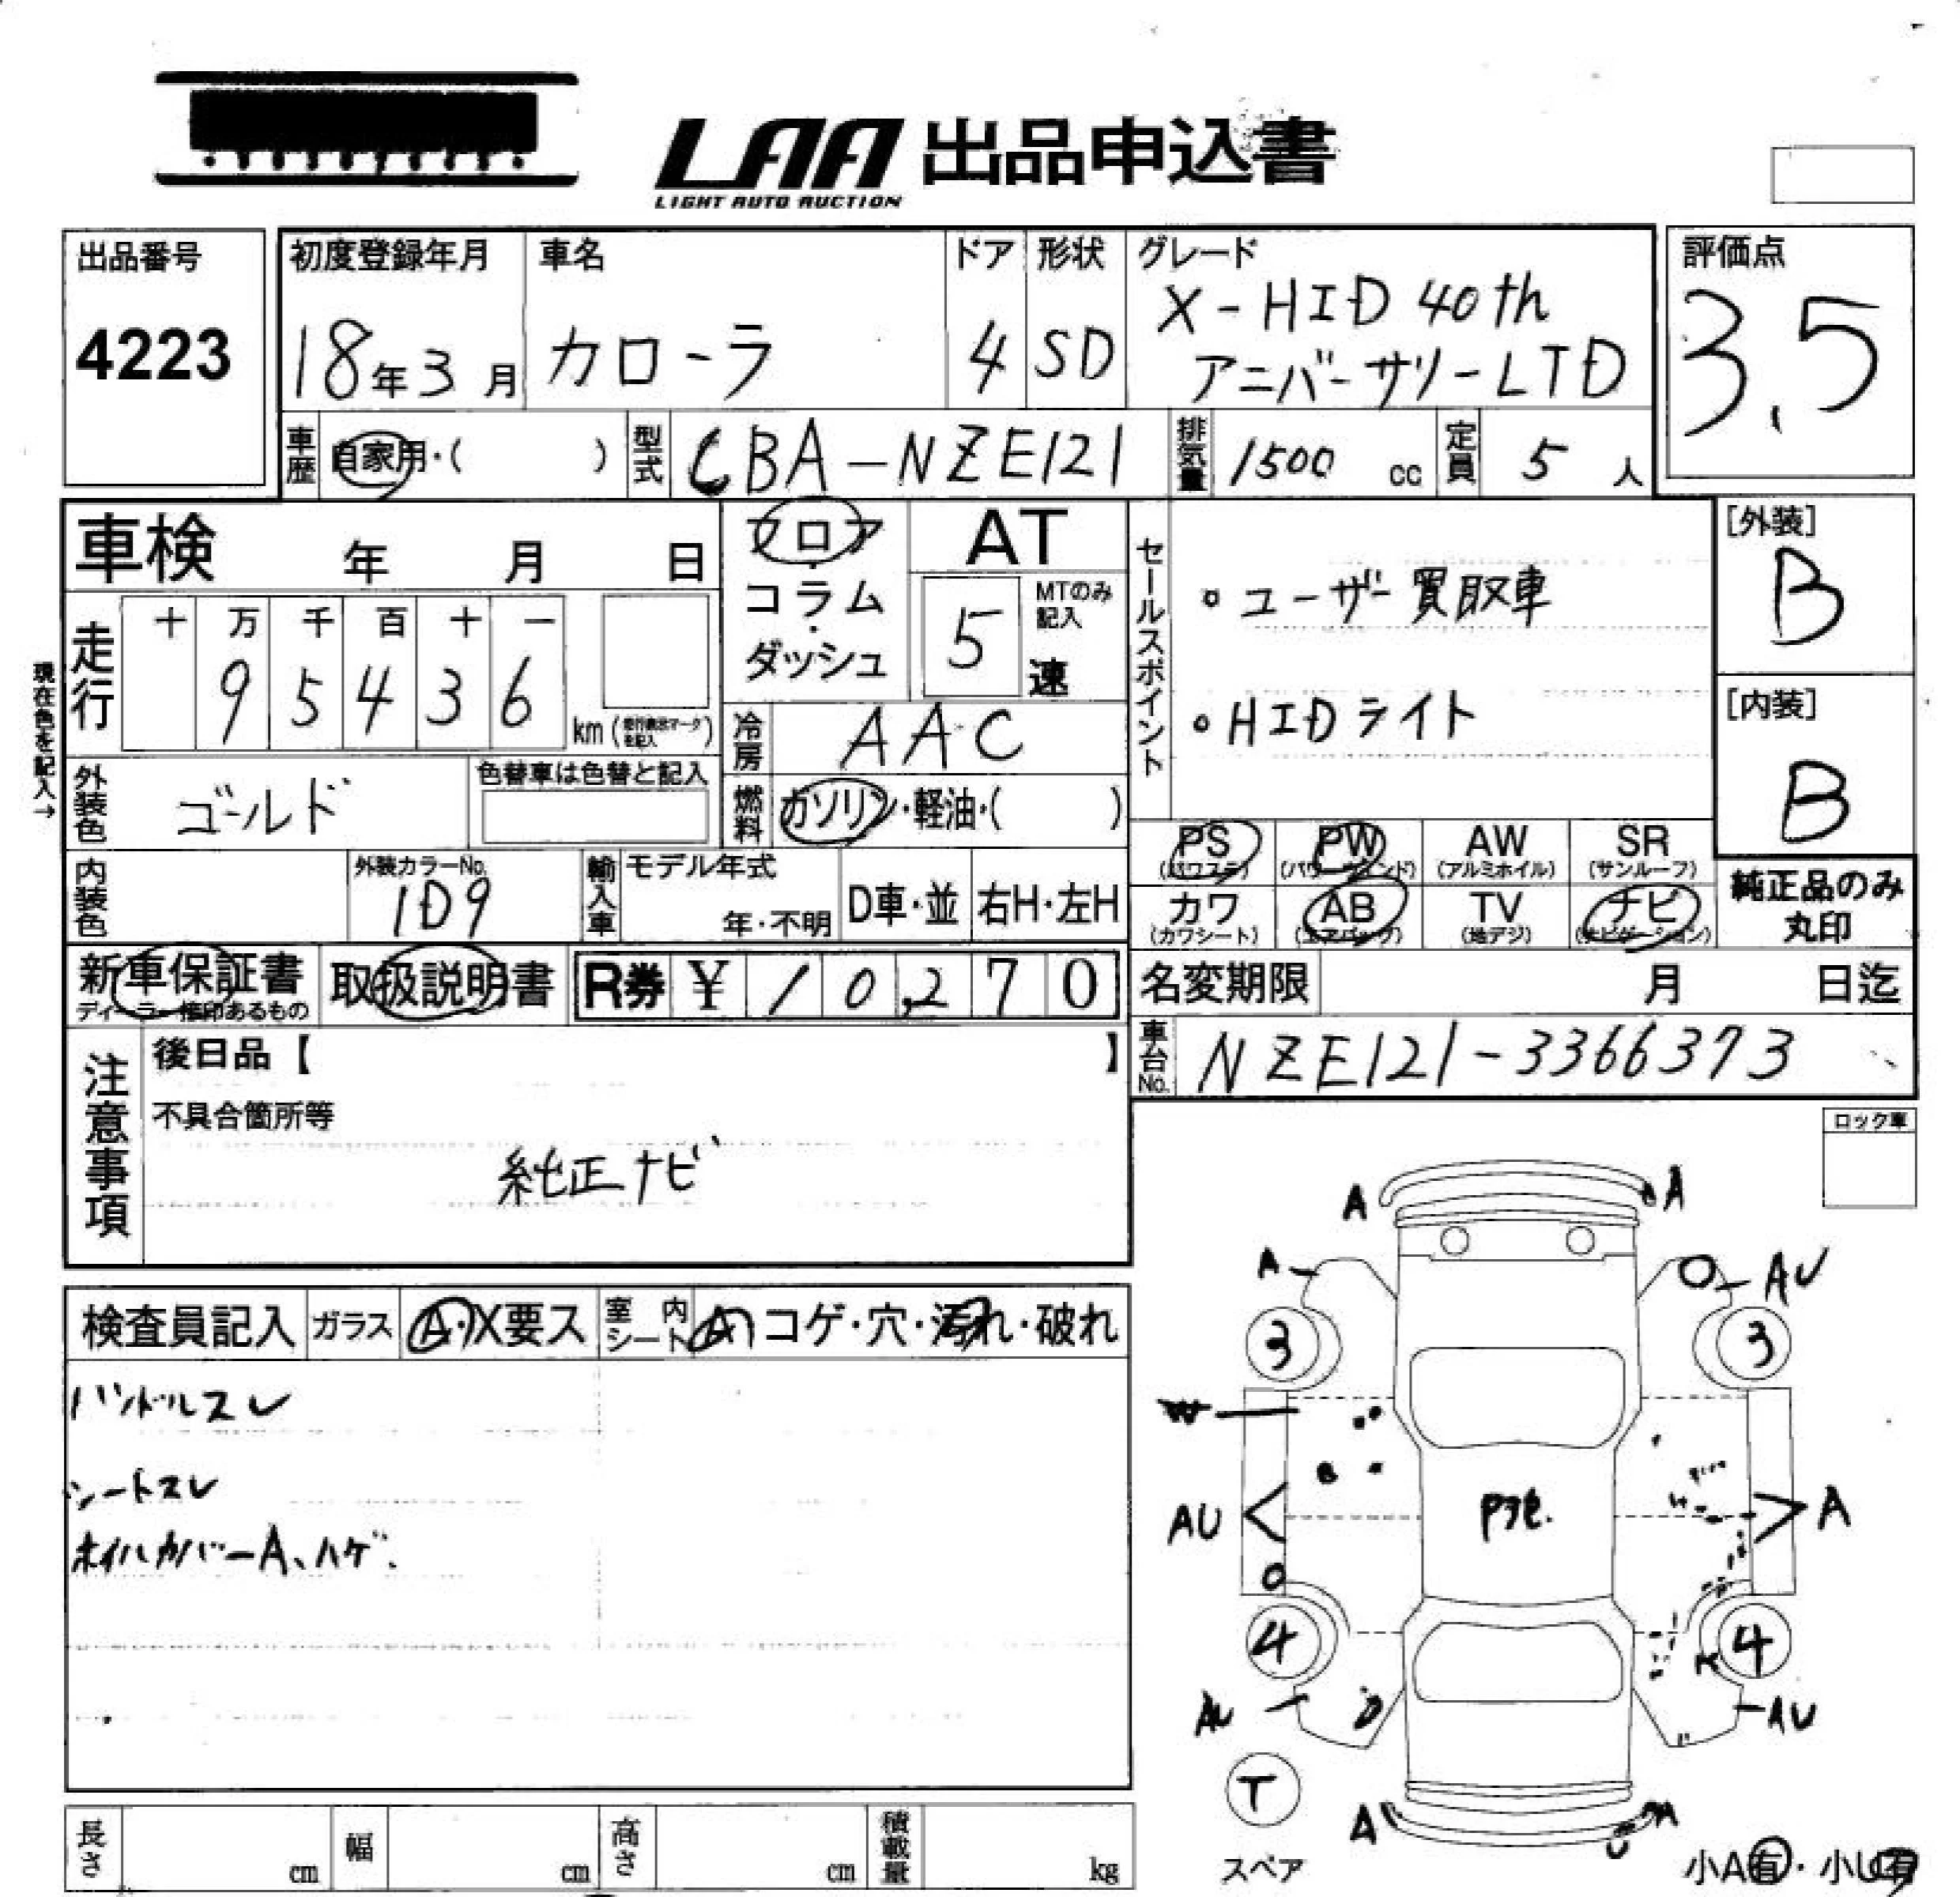 LAA 出品申込書
LIGHT AUTO AUCTION
出品番号
4223
初度登録年月
18年3月
車名
カローラ
ドア
4
形状
SD
グレード
X-HID 40th
アニバーサリーLTD
評価点
3.5
車歴
自家用・( )
型式
CBA-NZE121
排気量
1500 cc
定員
5 人
車検 年 月 日
現在色を記入→
走行
十 万 千 百 十 一
9 5 4 3 6
km(走行表示マークを記入)
フロア
・
コラム
・
ダッシュ
AT
5
MTのみ
記入
速
冷房
AAC
燃料
ガソリン・軽油・( )
セールスポイント
・ユーザー買取車
・HIDライト
[外装]
B
[内装]
B
外装色
ゴールド
色替車は色替と記入
内装色
外装カラーNo.
1D9
輸入車
モデル年式
年・不明
D車・並
右H・左H
PS
(パワステ)
PW
(パワーウインド)
AW
(アルミホイル)
SR
(サンルーフ)
カワ
(カワシート)
AB
(エアバッグ)
TV
(地デジ)
ナビ
(ナビゲーション)
純正品のみ
丸印
新車保証書
ディーラー捺印あるもの
取扱説明書
R券 ¥ 10,270
名変期限 月 日迄
車台No.
NZE121-3366373
注意事項
後日品【 】
不具合箇所等
純正ナビ
ロック車
検査員記入
ガラス
A・X要ス
室内シート
A コゲ・穴・汚れ・破れ
ハンドルスレ
シートスレ
ホイルカバーA、ハゲ.
A A
A AU
3 3
W
AU A
4 4
AU AU
T
スペア
A A
U
小A有・小U有
長さ cm
幅 cm
高さ cm
積載量 kg